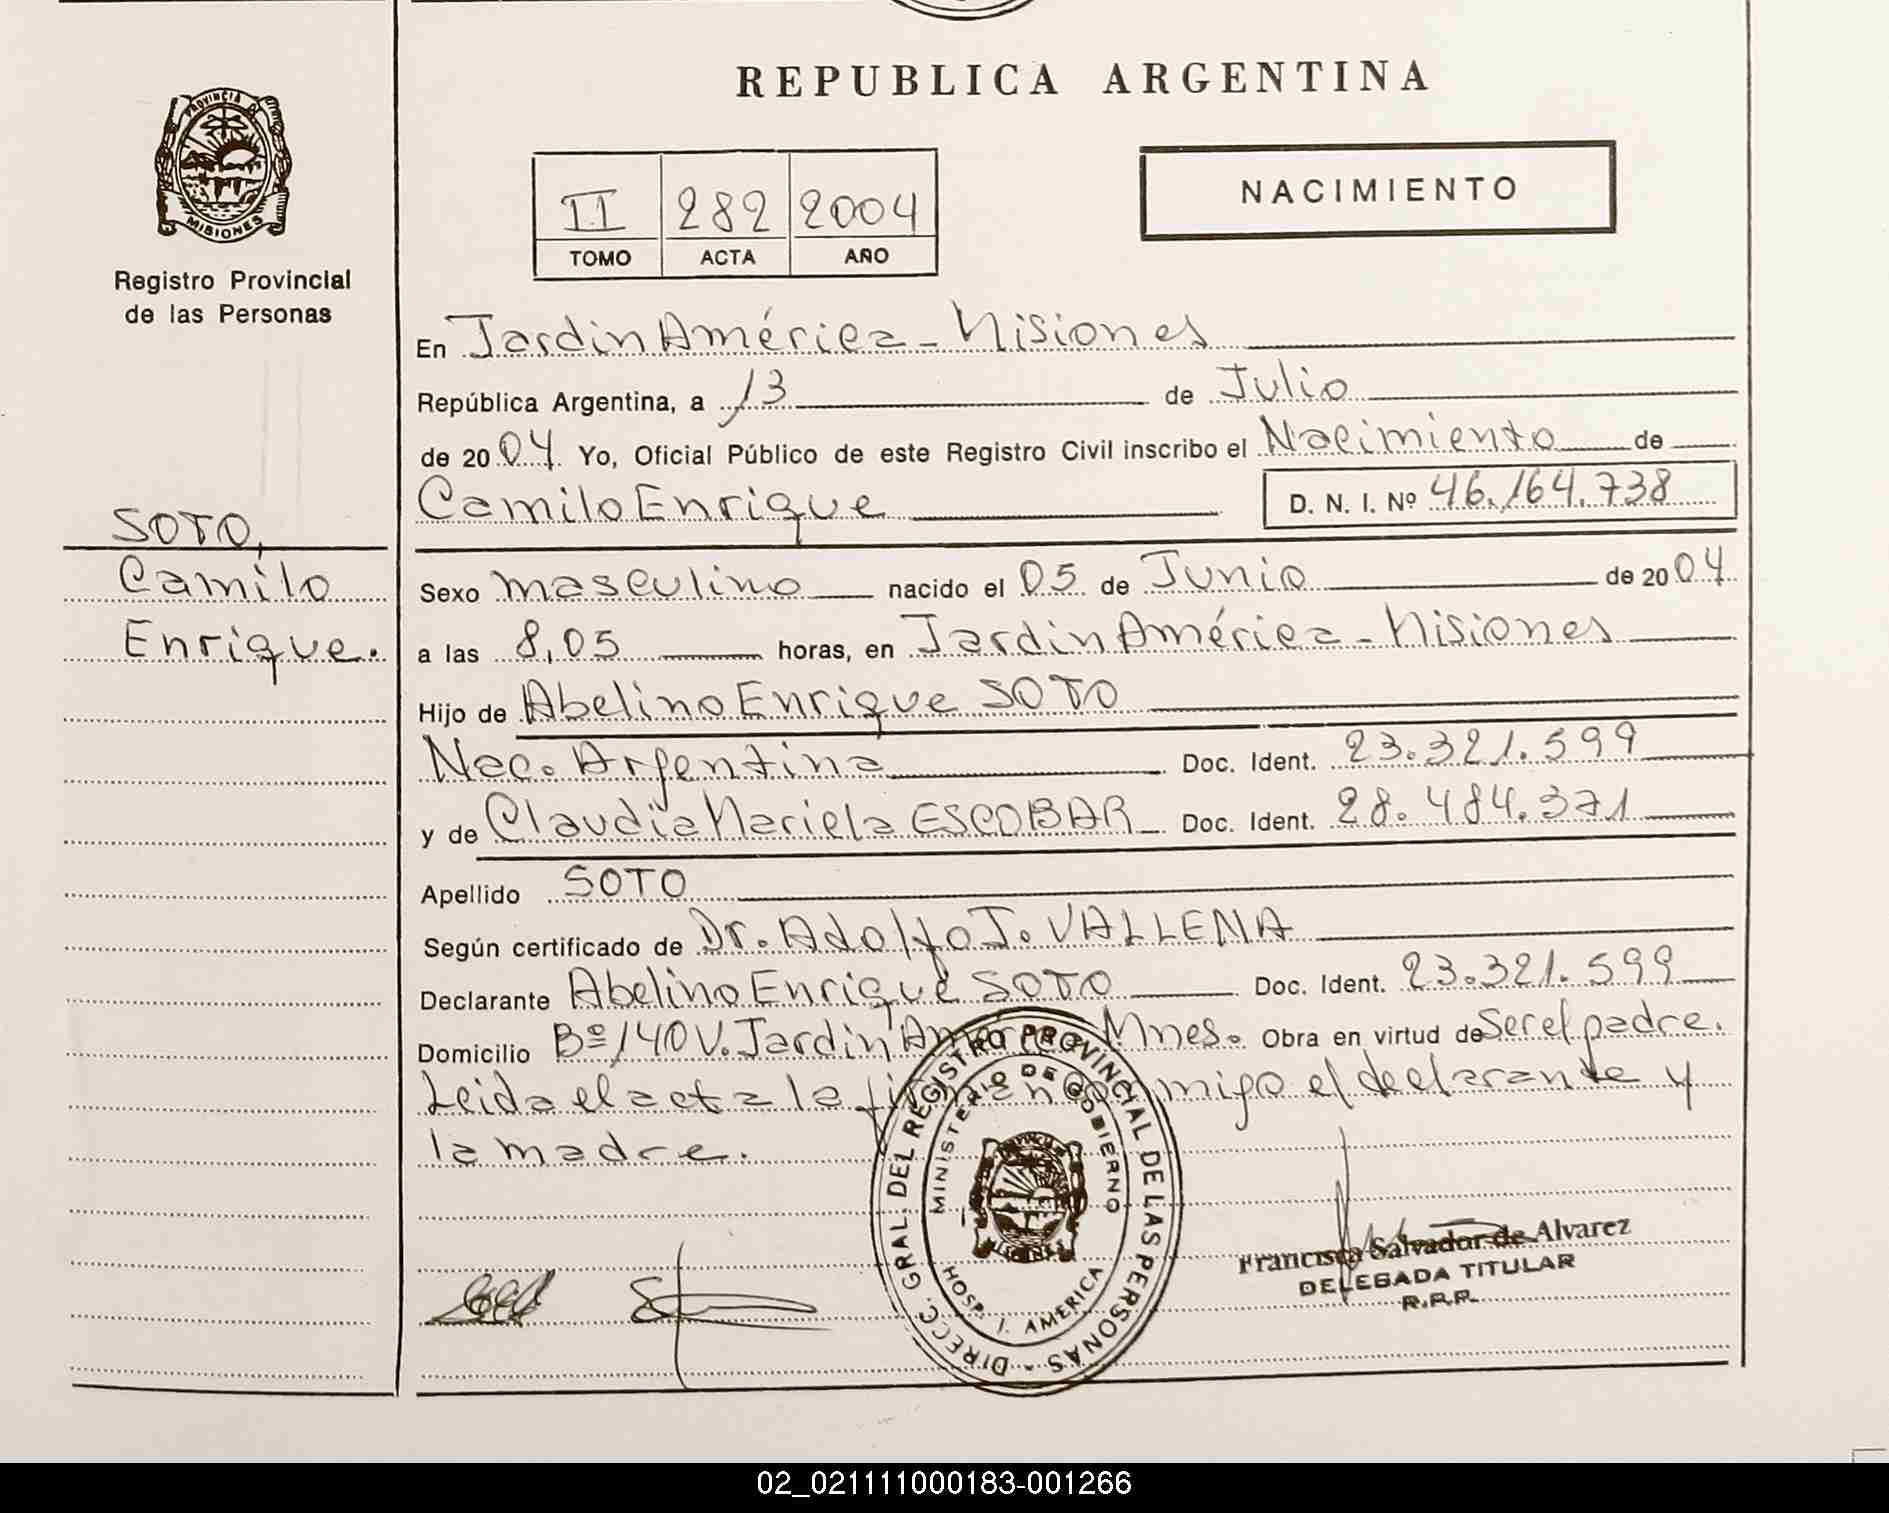 REPUBLICA ARGENTINA
PROVINCIA DE
MISIONES
Registro Provincial
de las Personas
II 282 2004
TOMO ACTA AÑO
NACIMIENTO
En Jardin América - Misiones
República Argentina, a 13 de Julio
de 2004 Yo, Oficial Público de este Registro Civil inscribo el Nacimiento de
Camilo Enrique D. N. I. Nº 46.164.738
SOTO,
Camilo
Enrique.
Sexo masculino nacido el 05 de Junio de 2004
a las 8,05 horas, en Jardin América - Misiones
Hijo de Abelino Enrique SOTO
Nac. Argentina Doc. Ident. 23.321.599
y de Claudia Mariela ESCOBAR Doc. Ident. 28.484.371
Apellido SOTO
Según certificado de Dr. Adolfo J. VALLEMA
Declarante Abelino Enrique SOTO Doc. Ident. 23.321.599
Domicilio Bº 140 V. Jardin América Mnes. Obra en virtud de Ser el padre.
Leida el acta la firman conmigo el declarante y
la madre.
DIRECC. GRAL. DEL REGISTRO PROVINCIAL DE LAS PERSONAS
MINISTERIO DE GOBIERNO
HOSP. J. AMERICA
Francisca Salvador de Alvarez
DELEGADA TITULAR
R.P.P.
02_021111000183-001266